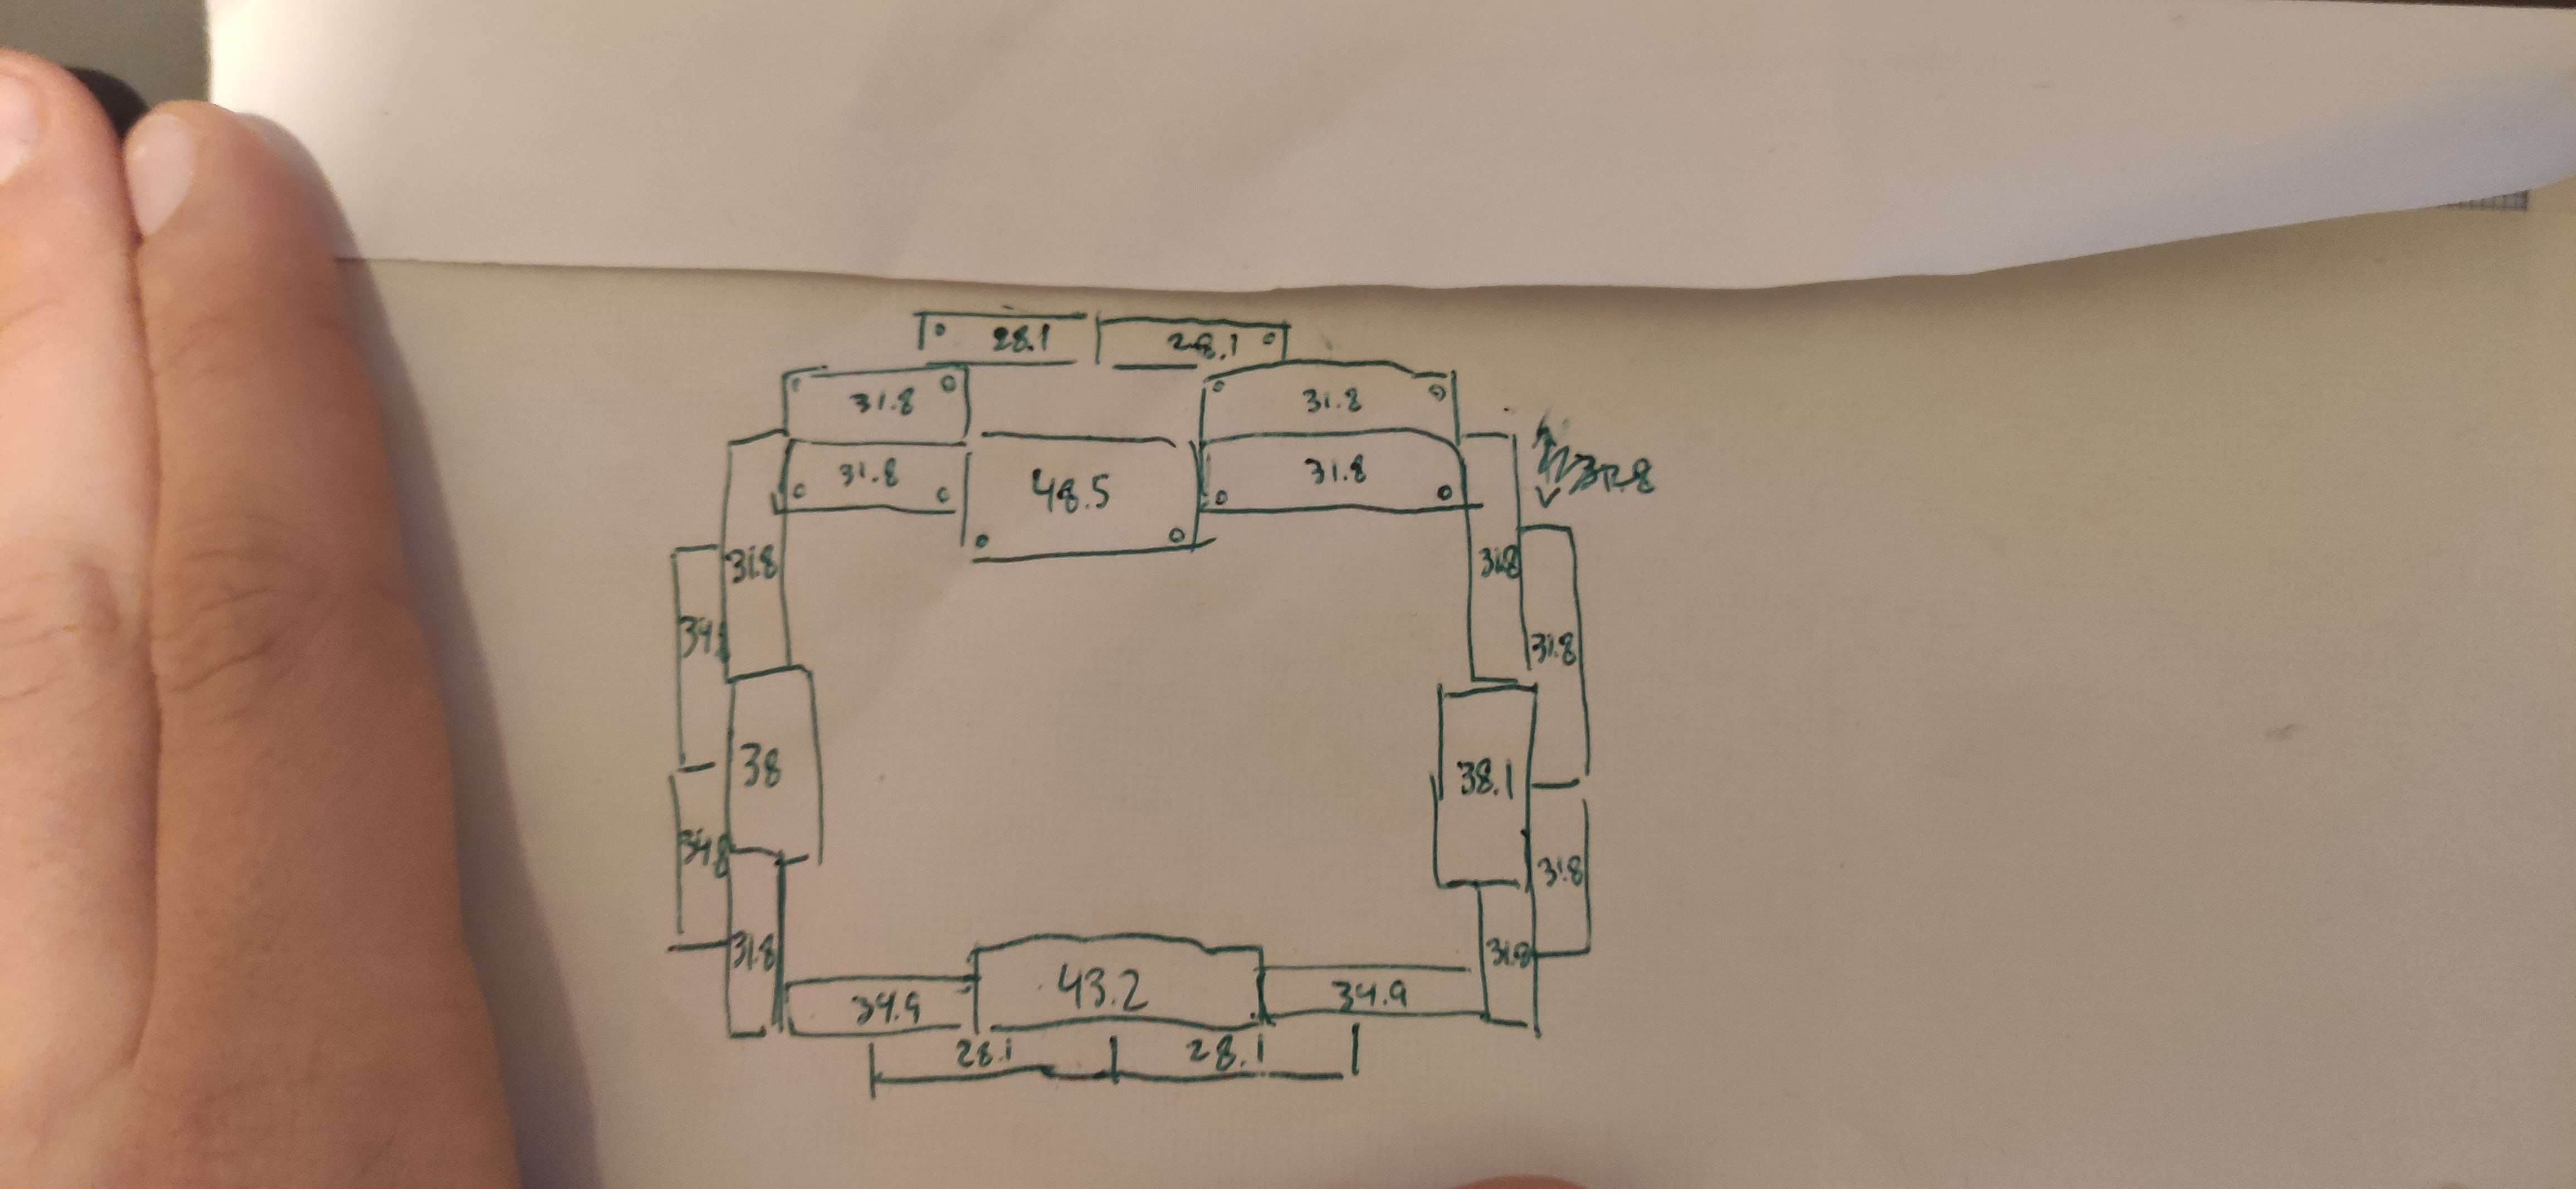 28.1 28.1
31.8 31.8
31.8 48.5 31.8
31.8 31.8
31.8
38 38.1
34.8 31.8
31.8 31.8
34.9 43.2 34.9
28.1 28.1